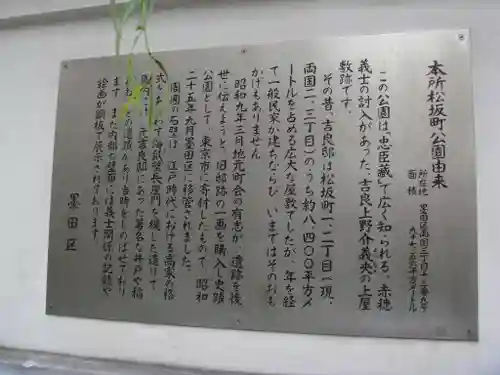 本所松坂町公園由来
所在地 墨田区両国三丁目十三番九号
面積 九十七・五平方メートル
この公園は、「忠臣蔵」で広く知られる、赤穂
義士の討入があった、吉良上野介義央の上屋
敷跡です。
その昔、吉良邸は松坂町一、二丁目(現、
両国二、三丁目)のうち約八、四〇〇平方メ
ートルを占める広大な屋敷でしたが、年を経
て一般民家が建ちならび、いまではそのおも
かげもありません。
昭和九年三月地元町会の有志が、遺跡を後
世に伝えようと、旧邸跡の一画を購入、史蹟
公園として、東京市に寄付したもので、昭和
二十五年九月墨田区に移管されました。
周囲の石壁は、江戸時代における高家の格
式をあらわす海鼠壁長屋門を模した造りで、
園内には、元吉良邸にあった著名な井戸や稲
などの遺蹟があり当時をしのばせており
ます。また内部の壁面には義士関係の記録や
絵画が銅板で展示されております。
墨田区